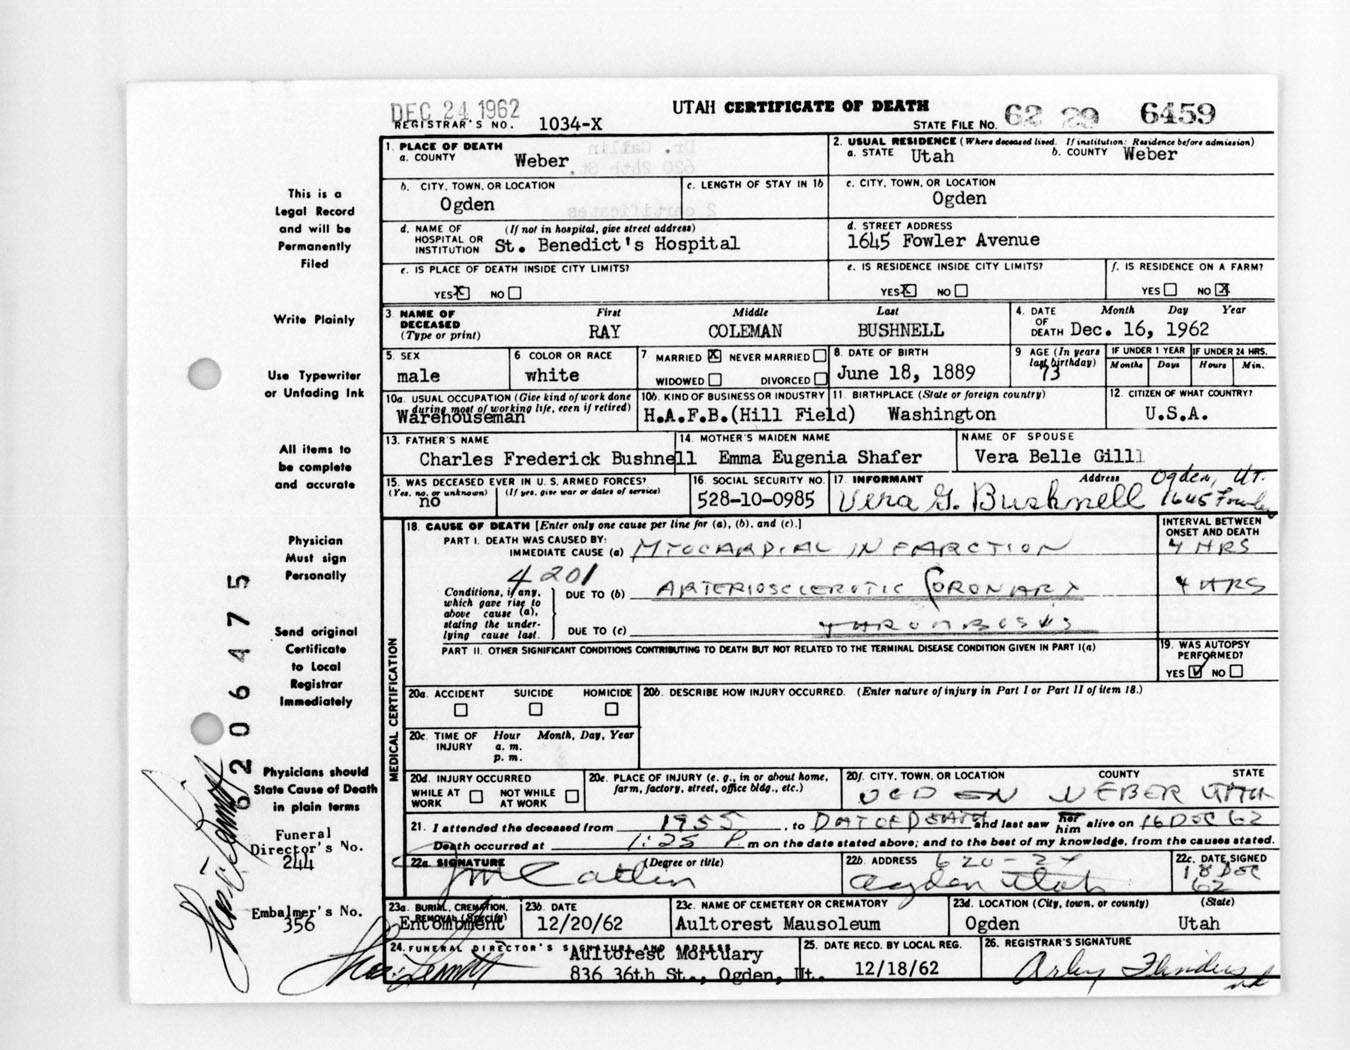 DEC 24 1962
UTAH CERTIFICATE OF DEATH
REGISTRAR'S NO. 1034-X
STATE FILE NO. 62 29 6459
1. PLACE OF DEATH
a. COUNTY Weber
2. USUAL RESIDENCE (Where deceased lived. If institution: Residence before admission)
a. STATE Utah b. COUNTY Weber
b. CITY, TOWN, OR LOCATION
Ogden
c. LENGTH OF STAY IN 1b
c. CITY, TOWN, OR LOCATION
Ogden
d. NAME OF HOSPITAL OR INSTITUTION (If not in hospital, give street address)
St. Benedict's Hospital
d. STREET ADDRESS
1645 Fowler Avenue
e. IS PLACE OF DEATH INSIDE CITY LIMITS?
YES X NO
e. IS RESIDENCE INSIDE CITY LIMITS?
YES X NO
f. IS RESIDENCE ON A FARM?
YES NO X
3. NAME OF DECEASED (Type or print)
First Middle Last
RAY COLEMAN BUSHNELL
4. DATE OF DEATH Month Day Year
Dec. 16, 1962
5. SEX
male
6 COLOR OR RACE
white
7 MARRIED X NEVER MARRIED
WIDOWED DIVORCED
8. DATE OF BIRTH
June 18, 1889
9 AGE (In years last birthday)
73
IF UNDER 1 YEAR IF UNDER 24 HRS.
Months Days Hours Min.
10a. USUAL OCCUPATION (Give kind of work done during most of working life, even if retired)
Warehouseman
10b. KIND OF BUSINESS OR INDUSTRY
H.A.F.B.(Hill Field)
11. BIRTHPLACE (State or foreign country)
Washington
12. CITIZEN OF WHAT COUNTRY?
U.S.A.
13. FATHER'S NAME
Charles Frederick Bushnell
14. MOTHER'S MAIDEN NAME
Emma Eugenia Shafer
NAME OF SPOUSE
Vera Belle Gill
15. WAS DECEASED EVER IN U. S. ARMED FORCES?
(Yes, no, or unknown) (If yes, give war or dates of service)
no
16. SOCIAL SECURITY NO.
528-10-0985
17. INFORMANT Address
Vera G. Bushnell
Ogden, Ut.
1645 Fowler
18. CAUSE OF DEATH [Enter only one cause per line for (a), (b), and (c).]
INTERVAL BETWEEN ONSET AND DEATH
PART I. DEATH WAS CAUSED BY:
IMMEDIATE CAUSE (a) MYOCARDIAL INFARCTION 4 HRS
4201
Conditions, if any, which gave rise to above cause (a), stating the underlying cause last.
DUE TO (b) ARTERIOSCLEROTIC CORONARY 4 HRS
DUE TO (c) THROMBOSIS
PART II. OTHER SIGNIFICANT CONDITIONS CONTRIBUTING TO DEATH BUT NOT RELATED TO THE TERMINAL DISEASE CONDITION GIVEN IN PART I(a)
19. WAS AUTOPSY PERFORMED?
YES NO
MEDICAL CERTIFICATION
20a. ACCIDENT SUICIDE HOMICIDE
20b. DESCRIBE HOW INJURY OCCURRED. (Enter nature of injury in Part I or Part II of item 18.)
20c. TIME OF INJURY Hour Month, Day, Year
a. m.
p. m.
20d. INJURY OCCURRED
WHILE AT WORK NOT WHILE AT WORK
20e. PLACE OF INJURY (e. g., in or about home, farm, factory, street, office bldg., etc.)
20f. CITY, TOWN, OR LOCATION COUNTY STATE
OGDEN WEBER UTAH
21. I attended the deceased from 1955, to DATE OF DEATH and last saw her him alive on 16 DEC 62
Death occurred at 1:25 P.m on the date stated above; and to the best of my knowledge, from the causes stated.
22a. SIGNATURE (Degree or title)
J M Catlin
22b. ADDRESS 620-24
Ogden Utah
22c. DATE SIGNED
18 DEC
62
23a. BURIAL, CREMATION, REMOVAL (Specify)
Entombment
23b. DATE
12/20/62
23c. NAME OF CEMETERY OR CREMATORY
Aultorest Mausoleum
23d. LOCATION (City, town, or county) (State)
Ogden Utah
24. FUNERAL DIRECTOR'S SIGNATURE AND ADDRESS
Aultorest Mortuary
836 36th St., Ogden, Ut.
25. DATE RECD. BY LOCAL REG.
12/18/62
26. REGISTRAR'S SIGNATURE
This is a
Legal Record
and will be
Permanently
Filed
Write Plainly
Use Typewriter
or Unfading Ink
All items to
be complete
and accurate
Physician
Must sign
Personally
Send original
Certificate
to Local
Registrar
Immediately
Physicians should
State Cause of Death
in plain terms
Funeral
Director's No.
244
Embalmer's No.
356
6206475